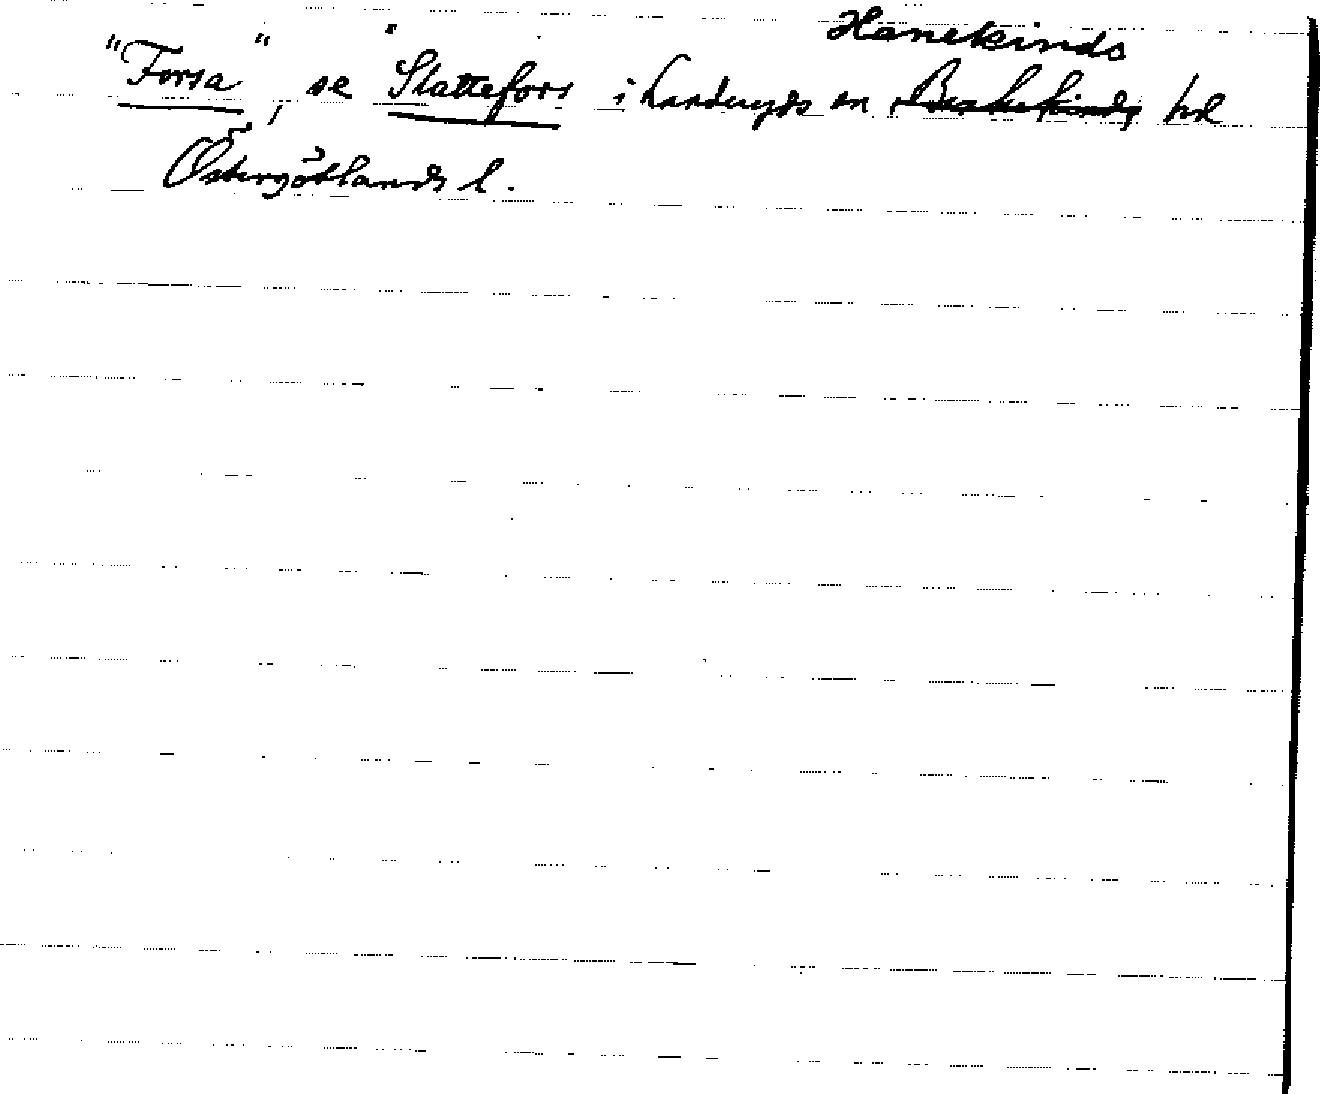 Hanekinds
"Forsa", se Slattefors i Landeryds sn Bankekinds hd
Östergötlands l.